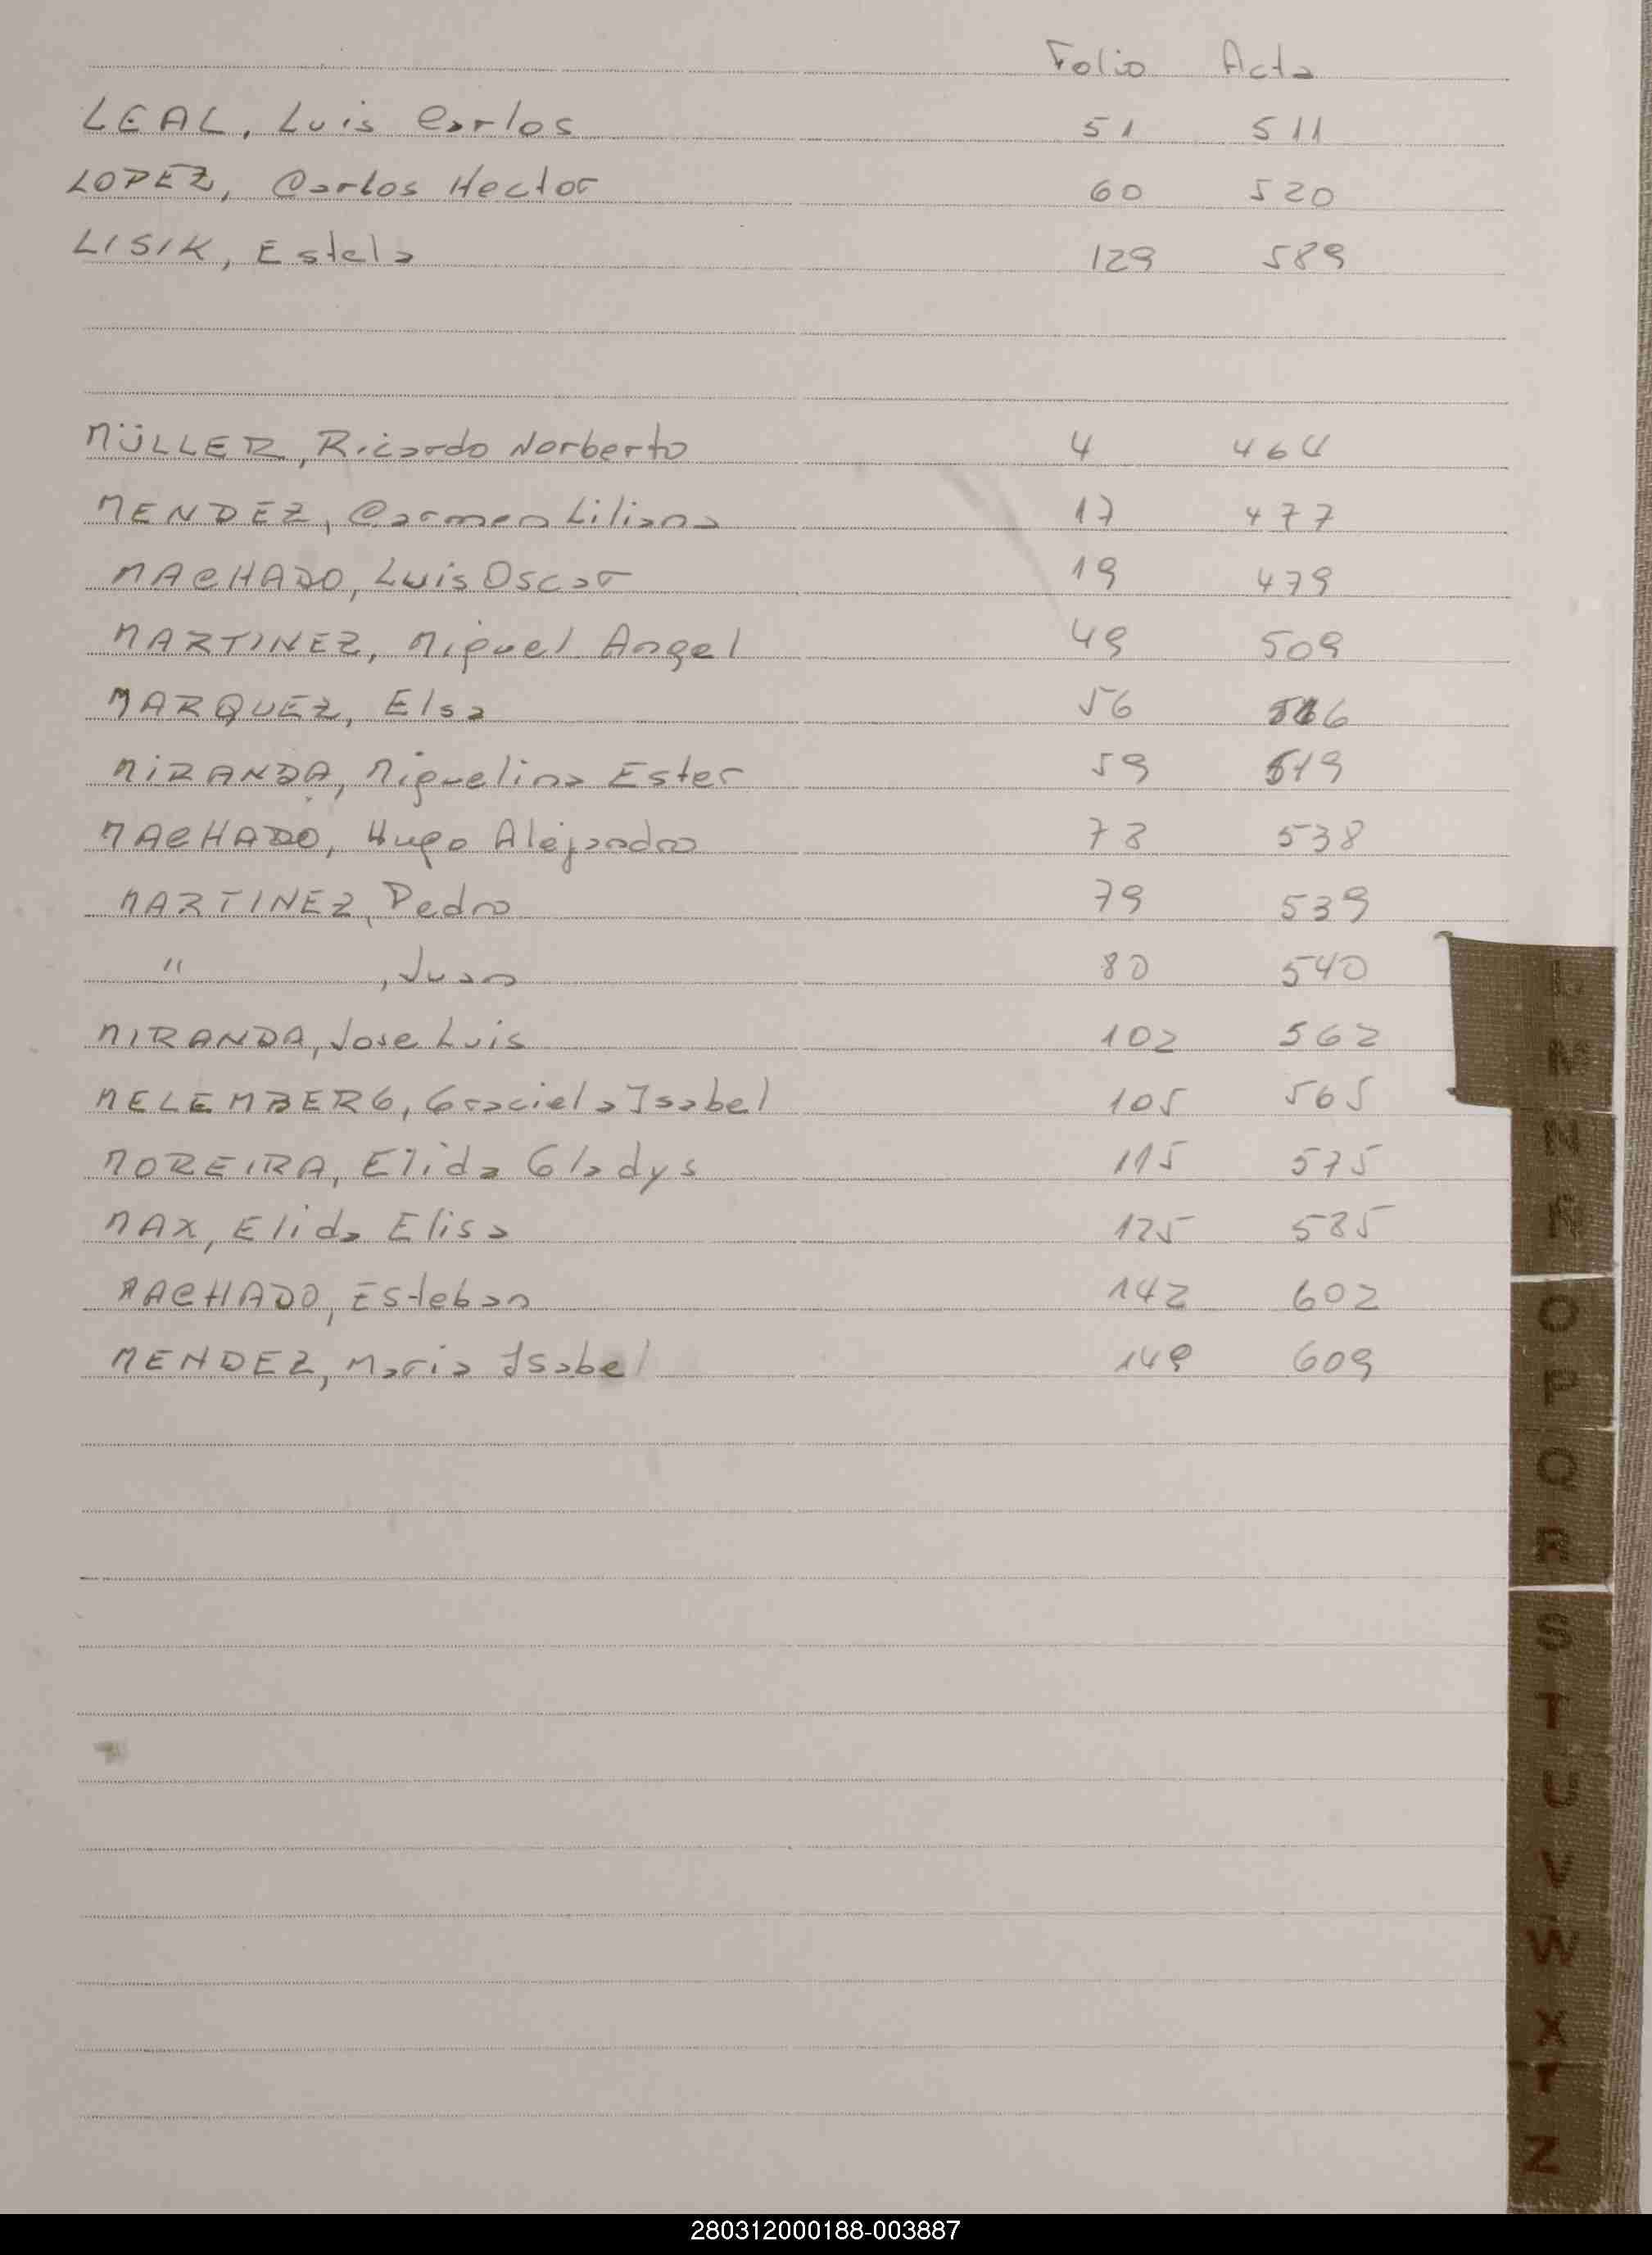 Folio Acta
LEAL, Luis Carlos 51 511
LOPEZ, Carlos Hector 60 520
LISIK, Estela 129 589
MÜLLER, Ricardo Norberto 4 464
MENDEZ, Carmen Liliana 17 477
MACHADO, Luis Oscar 19 479
MARTINEZ, Miguel Angel 49 509
MARQUEZ, Elsa 56 516
MIRANDA, Miguelina Ester 59 519
MACHADO, Hugo Alejandro 78 538
MARTINEZ, Pedro 79 539
" , Juan 80 540
MIRANDA, Jose Luis 102 562
MELEMBERG, Graciela Isabel 105 565
MOREIRA, Elida Gladys 115 575
MAX, Elida Elisa 125 585
MACHADO, Esteban 142 602
MENDEZ, Maria Isabel 149 609
L
M
N
Ñ
O
P
Q
R
S
T
U
V
W
X
Y
Z
280312000188-003887